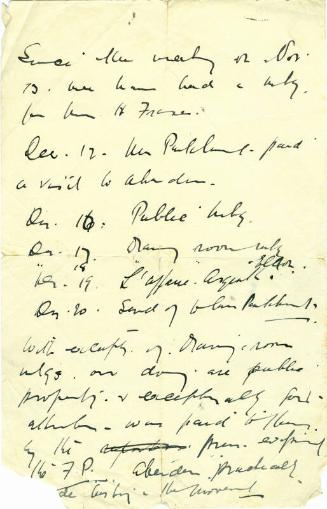 Since the meeting on Nov.
13. we have had a mtg.
for Mrs H Fraser.
Dec. 12. Mrs Pankhurst paid
a visit to Aberdeen.
Dec. 16. Public mtg.
Dec. 17. Drawing room mtg
Dec. 19. L'affaire Argent
Dec. 20. Send off to Mrs Pankhurst
With exceptn. of drawing-room
mtgs. our doings are public
property. & exceptionally
attention was paid to them
by the press. except
the F.P. Aberdeen practically
the movement